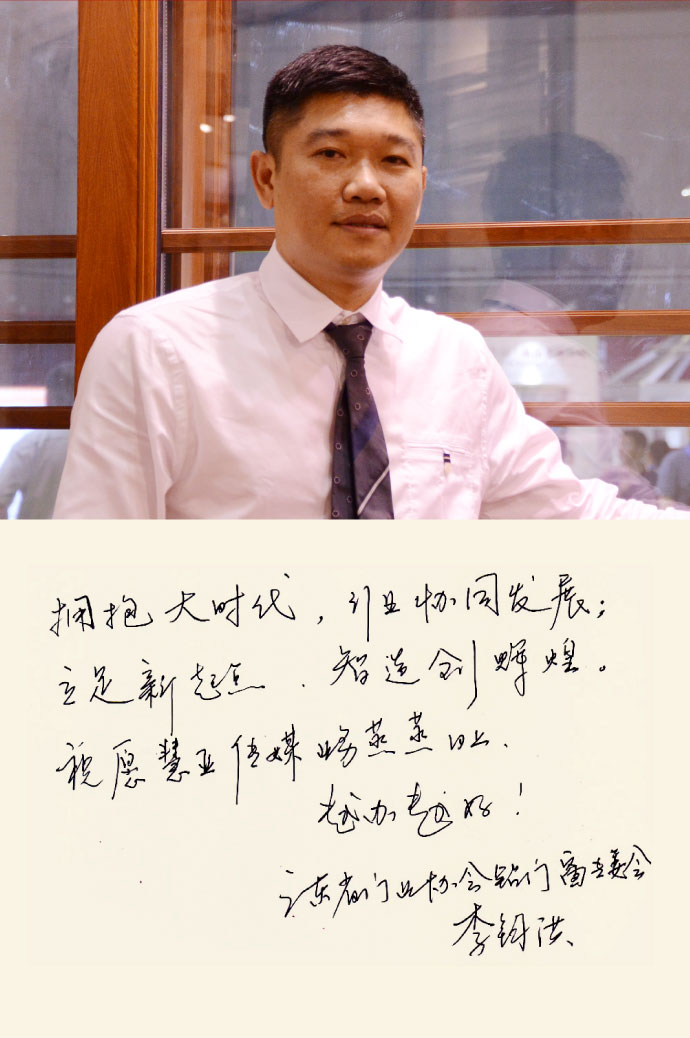 拥抱大时代，引业协同发展；
立足新起点，智造创辉煌。
祝愿慧亚传媒 蒸蒸日上，
越办越好！
广东省门业协会铝门窗专委会
李钧洪